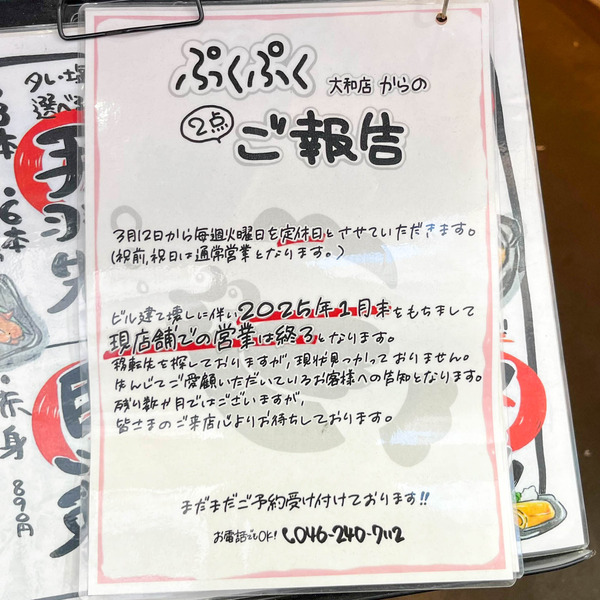 ぷくぷく 大和店 からの
2点 ご報告
3月12日から毎週火曜日を定休日とさせていただきます。
(祝前,祝日は通常営業となります。)
ビル建て壊しに伴い2025年1月末をもちまして
現店舗での営業は終了となります。
移転先を探しておりますが,現状見つかっておりません。
先んじてご愛顧いただいているお客様への告知となります。
残り数か月ではございますが,
皆さまのご来店心よりお待ちしております。
まだまだご予約受け付けております!!
お電話でもOK! 046-240-7112
選べる
6本
赤身
890円